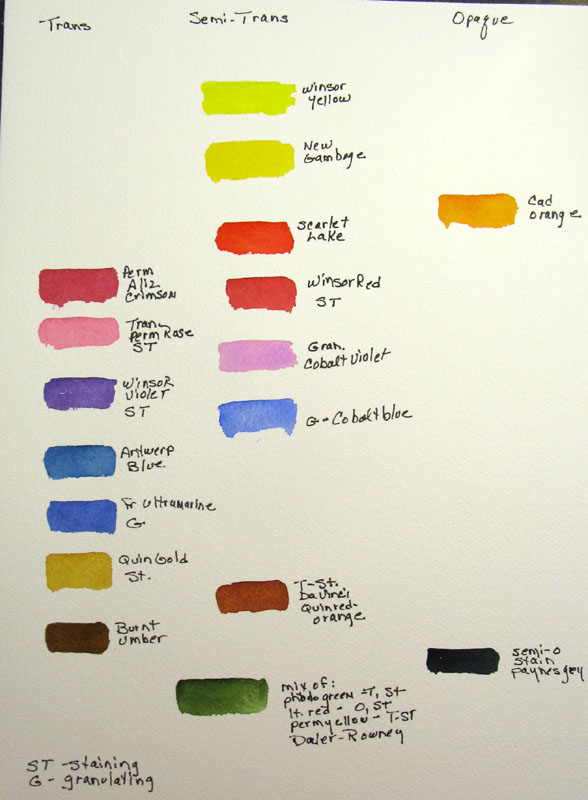 Trans
Semi-Trans
Opaque
Winsor
Yellow
New
Gamboge
Cad
Orange
Scarlet
Lake
Perm
Aliz
Crimson
Winsor Red
ST
Trans
Perm Rose
ST
Gran.
Cobalt Violet
Winsor
Violet
ST
G - Cobalt blue
Antwerp
Blue
Fr Ultramarine
G.
Quin Gold
St.
T-St.
Davinci
Quin red-
orange
Burnt
umber
semi-o
stain
paynes grey
mix of:
phthdo green - T, St
lt. red - O, St
perm yellow - T-ST
Daler-Rowney
ST - staining
G - granulating